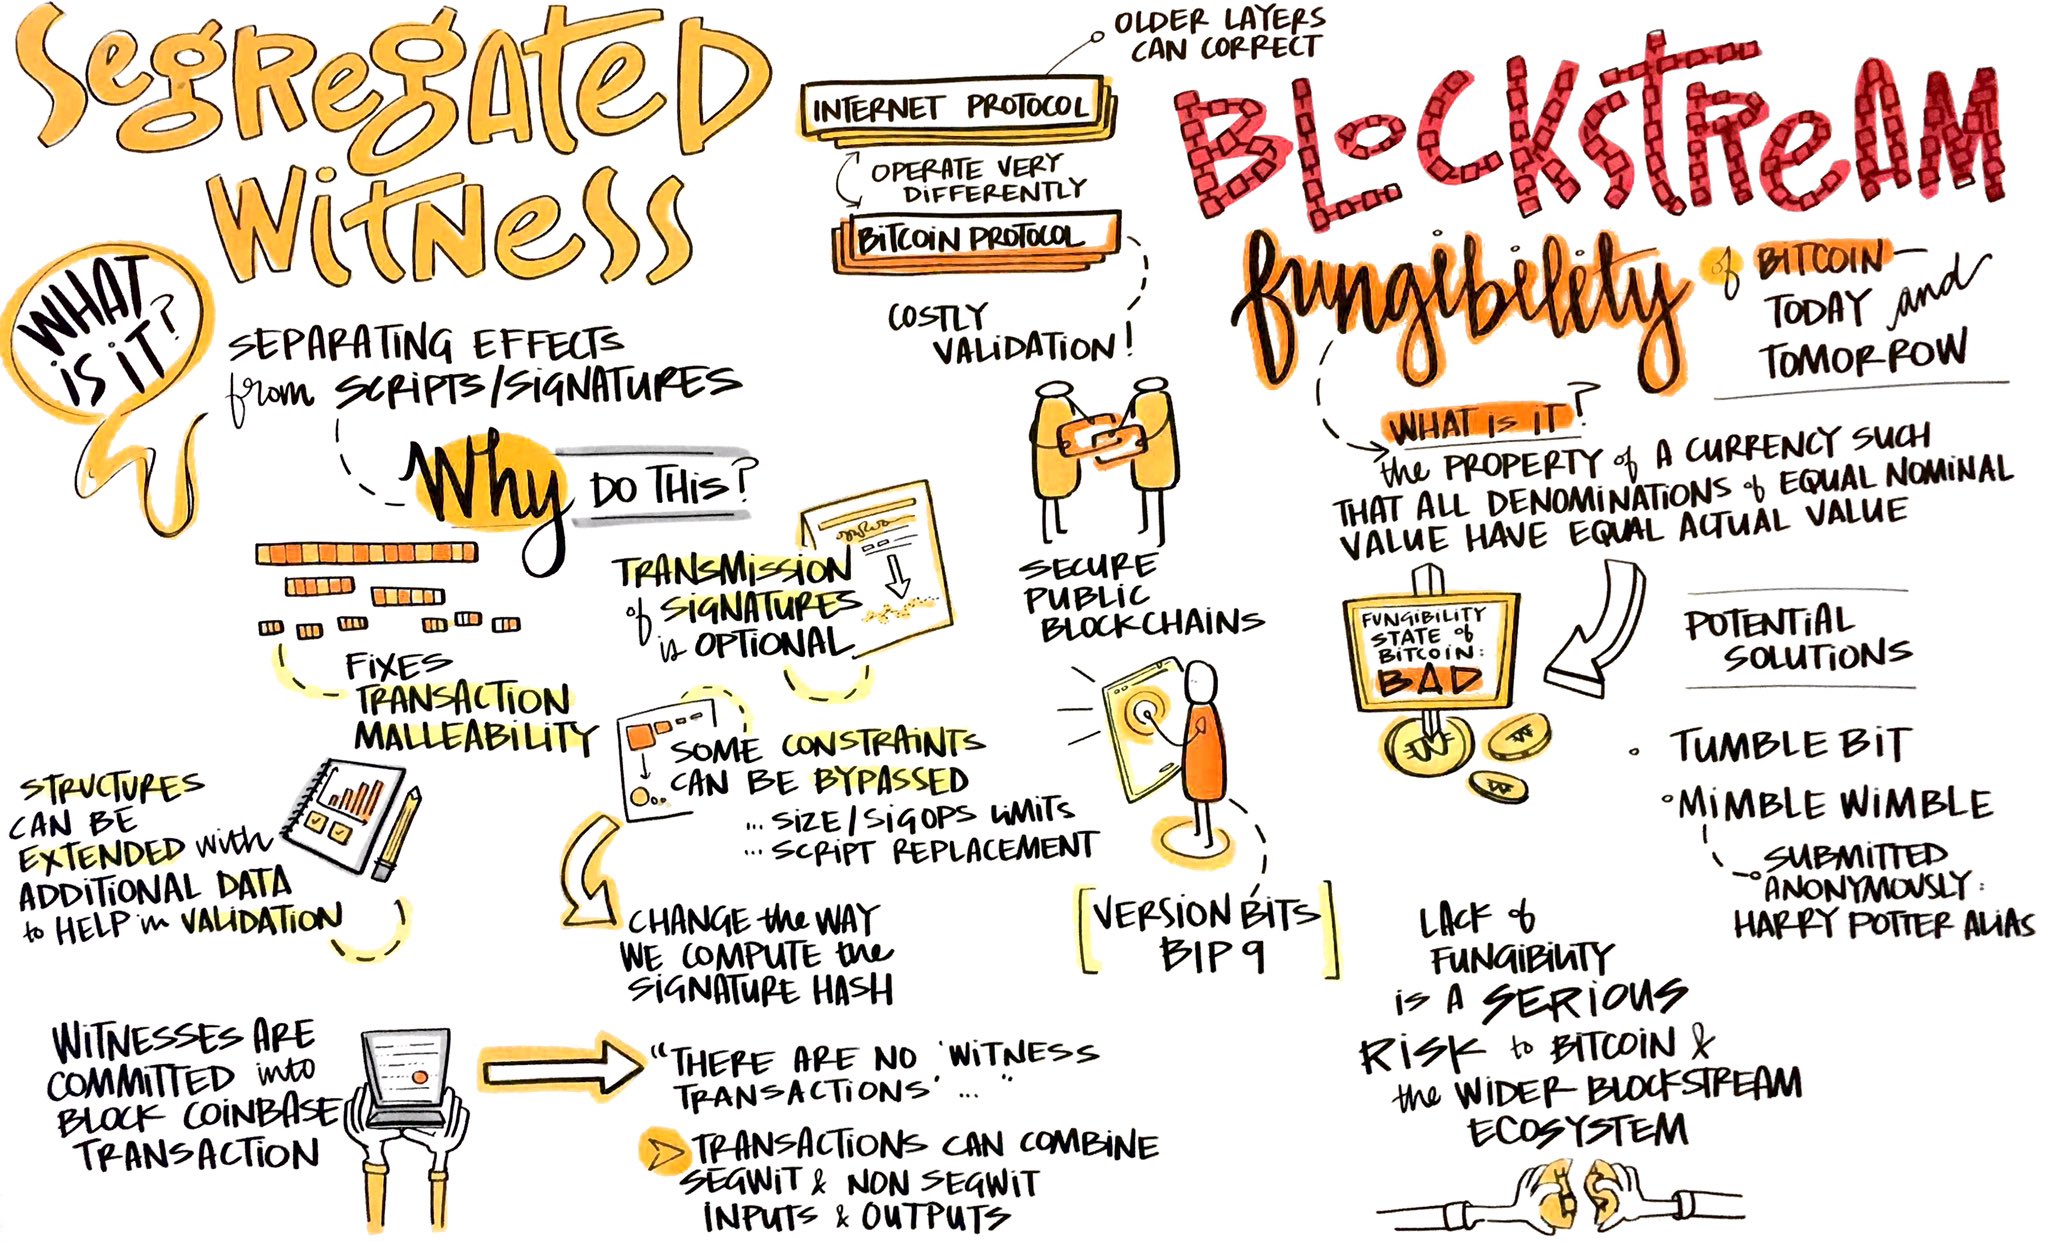 SEGREGATED
WITNESS
WHAT
IS IT?
SEPARATING EFFECTS
from SCRIPTS/SIGNATURES
Why DO THIS?
FIXES
TRANSACTION
MALLEABILITY
TRANSMISSION
of SIGNATURES
is OPTIONAL
STRUCTURES
CAN BE
EXTENDED with
ADDITIONAL DATA
to HELP in VALIDATION
SOME CONSTRAINTS
CAN BE BYPASSED
... SIZE/SIGOPS LIMITS
... SCRIPT REPLACEMENT
CHANGE the WAY
WE COMPUTE the
SIGNATURE HASH
WITNESSES ARE
COMMITTED into
BLOCK COINBASE
TRANSACTION
"THERE ARE NO 'WITNESS
TRANSACTIONS' ... "
TRANSACTIONS CAN COMBINE
SEGWIT & NON SEGWIT
INPUTS & OUTPUTS
OLDER LAYERS
CAN CORRECT
INTERNET PROTOCOL
OPERATE VERY
DIFFERENTLY
BITCOIN PROTOCOL
COSTLY
VALIDATION!
SECURE
PUBLIC
BLOCKCHAINS
[VERSION BITS
BIP 9]
BLOCKSTREAM
fungibility of BITCOIN—
TODAY and
TOMORROW
WHAT IS IT?
the PROPERTY of A CURRENCY SUCH
THAT ALL DENOMINATIONS of EQUAL NOMINAL
VALUE HAVE EQUAL ACTUAL VALUE
FUNGIBILITY
STATE of
BITCOIN:
BAD
POTENTIAL
SOLUTIONS
• TUMBLE BIT
• MIMBLE WIMBLE
SUBMITTED
ANONYMOUSLY:
HARRY POTTER ALIAS
LACK of
FUNGIBILITY
is A SERIOUS
RISK to BITCOIN &
the WIDER BLOCKSTREAM
ECOSYSTEM